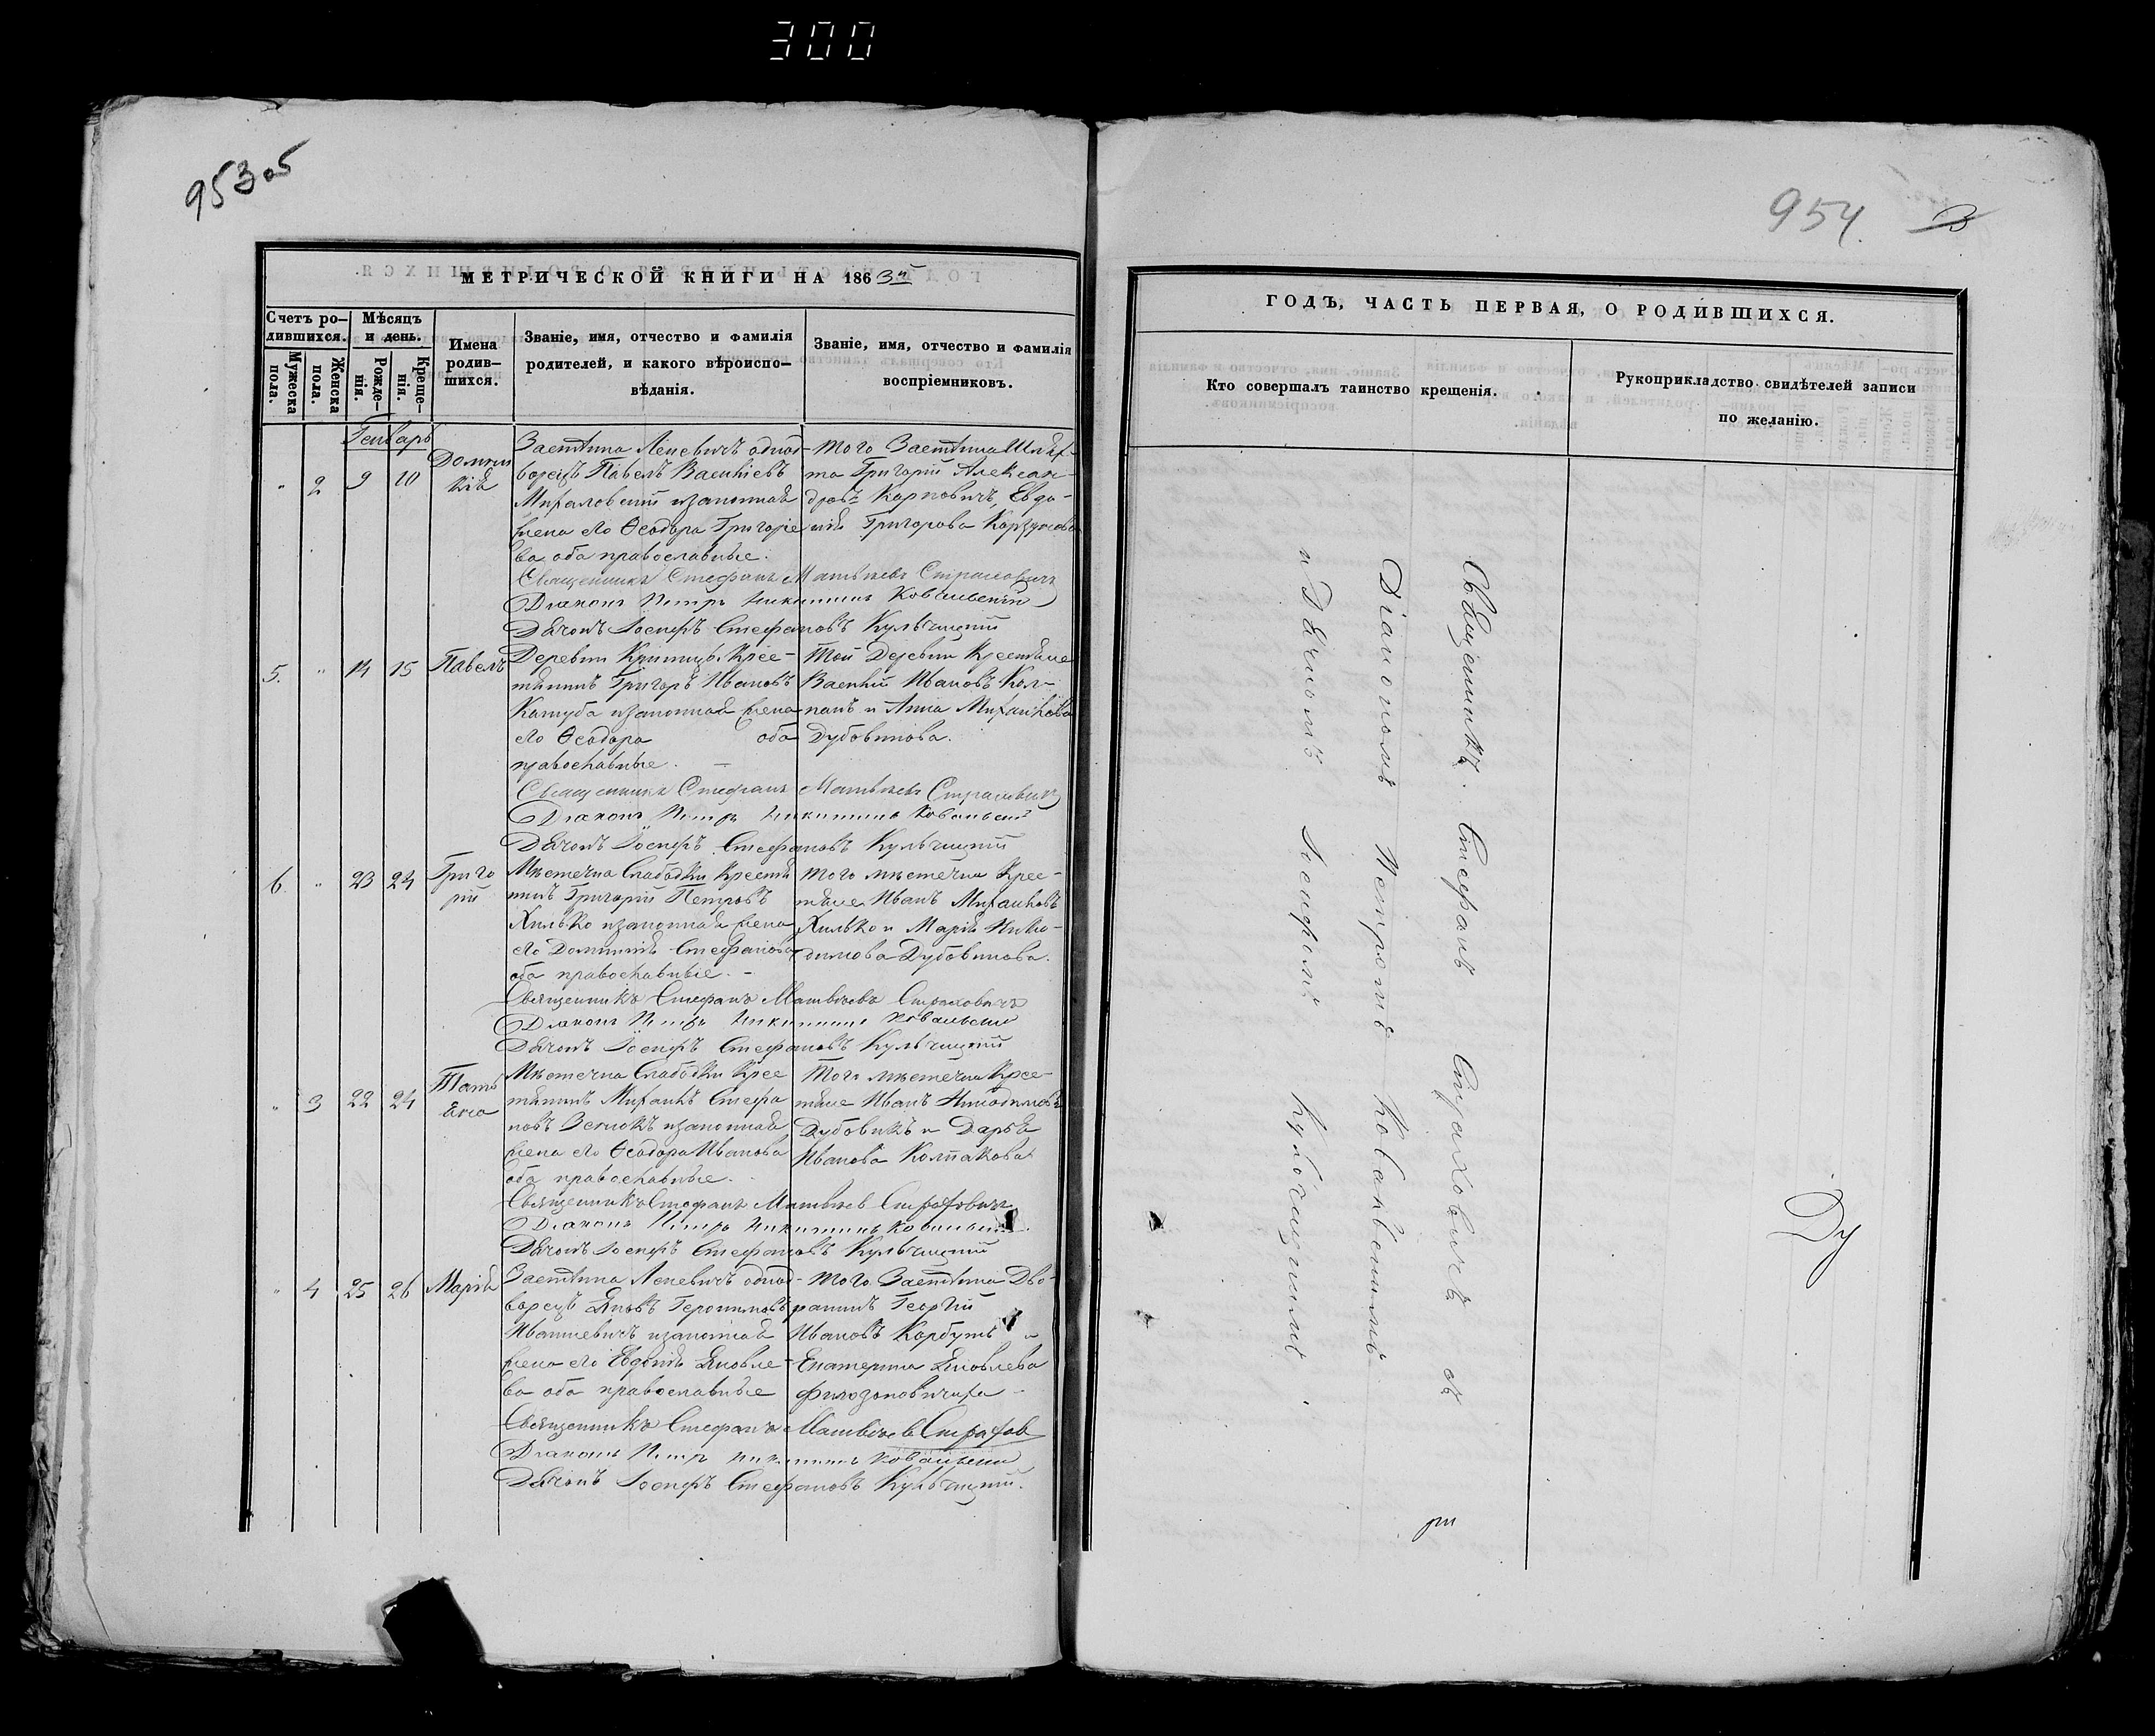 300
953об
МЕТРИЧЕСКОЙ КНИГИ НА 1863й
Счетъ родившихся.
Мужеска пола.
Женска пола.
Мѣсяцъ и день.
Рожденія.
Крещенія.
Имена родившихся.
Званіе, имя, отчество и фамилія
родителей, и какого вѣроиспо-
вѣданія.
Званіе, имя, отчество и фамилія
воспріемниковъ.
Генварь
" 2 9 10 Домни
кія
Застѣнка Леневичъ однод-
ворецъ Павелъ Васильевъ
законная
жена его Ѳеодора Григорье
ва оба православные.
того Застѣнка
та Григорій Алексан-
дровъ Карповичъ, Евдо-
кія Григорова
Священникъ Стефанъ Матѣевъ Страховичъ
Діаконъ Петръ Никитинъ Ковальскій
Дьячокъ Іосифъ Стефановъ Кульчицкій
5. " 14 15 Павелъ
Деревни Криницы Крес-
тьянинъ Григоръ Ивановъ
изаконная жена
его Ѳеодора оба
православные.
Той Деревни Крестьяне
Василій Ивановъ Кол-
пакъ и Анна Михайлова
Дубовикова.
Священникъ Стефанъ Матѣевъ Страховичъ
Діаконъ Петръ Никитинъ Ковальскій
Дьячокъ Іосифъ Стефановъ Кульчицкій
6. " 23 24 Григо
рій
Мѣстечка Слабодки Крестья
нинъ Григорій Петровъ
Хилько изаконная жена
его Домникія Стефанова
оба православные.
того мѣстечка Крес-
тьяне Иванъ Михайловъ
Хилько и Марія Нико-
димова Дубовикова.
Священникъ Стефанъ Матвѣевъ Страховичъ
Діаконъ Петръ Никитинъ Ковальскій
Дьячокъ Іосифъ Стефановъ Кульчицкій
" 3 22 24 Тать
яна
Мѣстечка Слабодки Крес
тьянинъ Михаилъ Стефа
новъ изаконная
жена его Ѳеодора Иванова
оба православные.
Того мѣстечка Крес-
тьяне Иванъ Никодимовъ
Дубовикъ и Дарья
Иванова Колпакова
Священникъ Стефанъ Матвѣевъ Страховичъ
Діаконъ Петръ Никитинъ Ковальскій.
Дьячокъ Іосифъ Стефановъ Кульчицкій
" 4 25 26 Марія
Застѣнка Леневичъ однод-
ворецъ Яковъ Геронимовъ
изаконная
жена его Евдокія Яковле-
ва оба православные
того Застѣнка Дво-
рянинъ Георгій
Ивановъ Корбутъ и
Екатерина Яковлева
Священникъ Стефанъ Матвѣевъ Страхов
Діаконъ Петръ Никитинъ Ковальскій
Дьячокъ Іосифъ Стефановъ Кульчицкій.
954.
ГОДЪ, ЧАСТЬ ПЕРВАЯ, О РОДИВШИХСЯ.
Кто совершалъ таинство крещенія.
Рукоприкладство свидѣтелей записи
по желанію.
Священникъ Стефанъ Страховичъ съ
Діакономъ Петромъ Ковальскимъ
и Дьячкомъ Іосифомъ Кульчицкимъ.